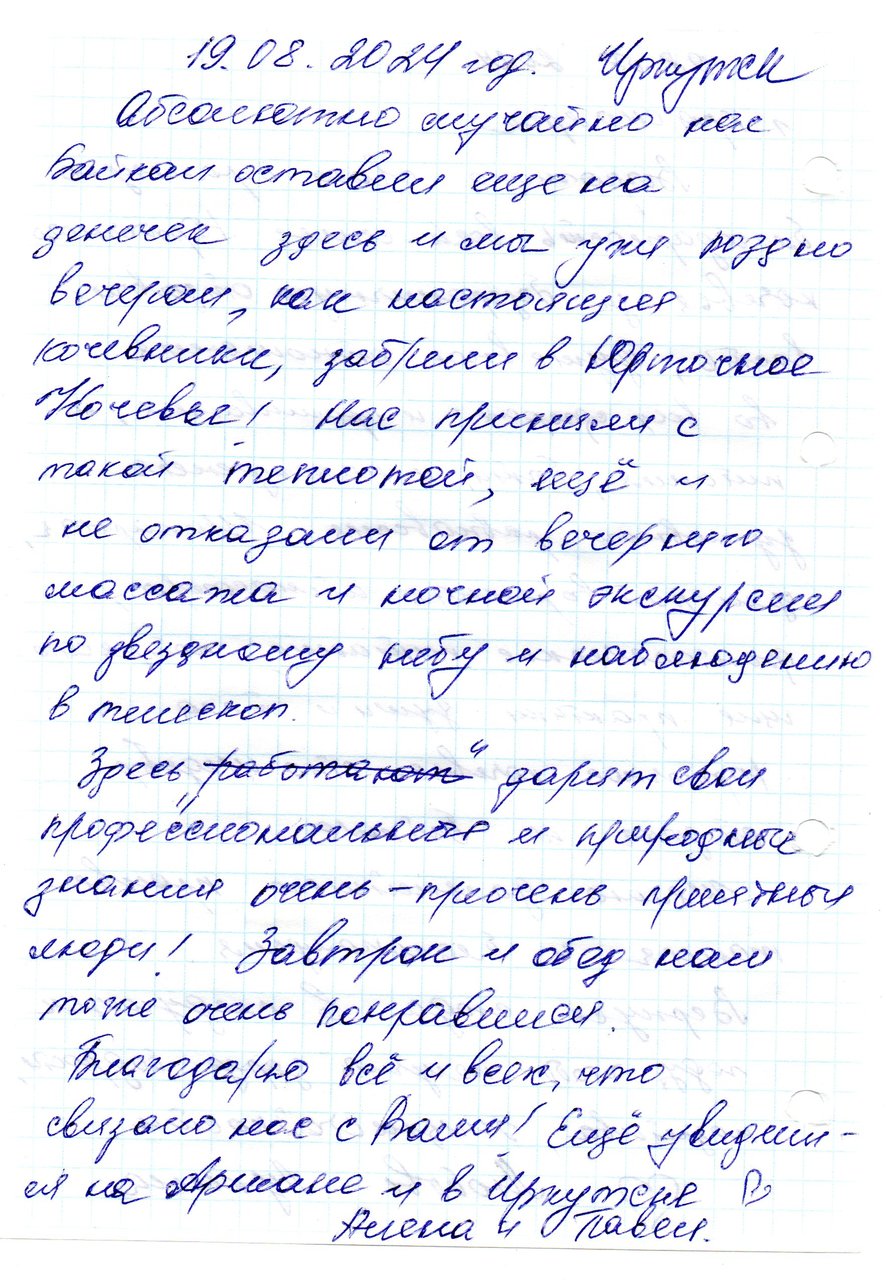 19.08.2024 год. Иркутск
Абсолютно случайно нас
Байкал оставил еще на
денечек здесь и мы уже поздно
вечером, как настоящие
кочевники, забрели в Юрточное
Кочевье! Нас приняли с
такой теплотой, ещё и
не отказали от вечернего
массажа и ночной экскурсии
по звездному небу и наблюдению
в телескоп.
Здесь „работают“ дарят свои
профессиональные и природные
знания очень-преочень приятные
люди! Завтрак и обед нам
тоже очень понравился.
Благодарю всё и всех, что
связало нас с Вами! Ещё увидим-
ся на Аршане и в Иркутске
Алена и Павел.